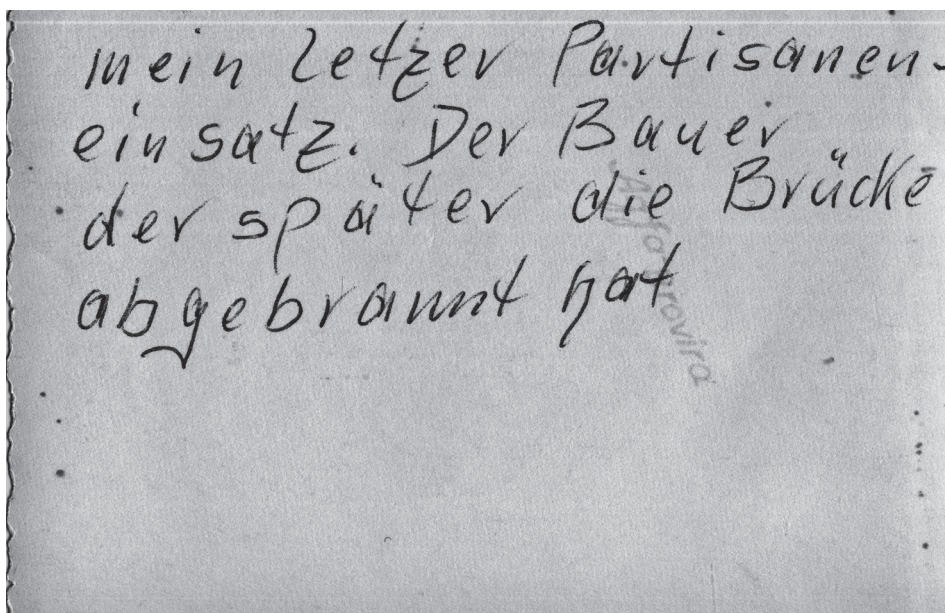 mein letzer Partisanen-
einsatz. Der Bauer
der später die Brücke
abgebrannt hat